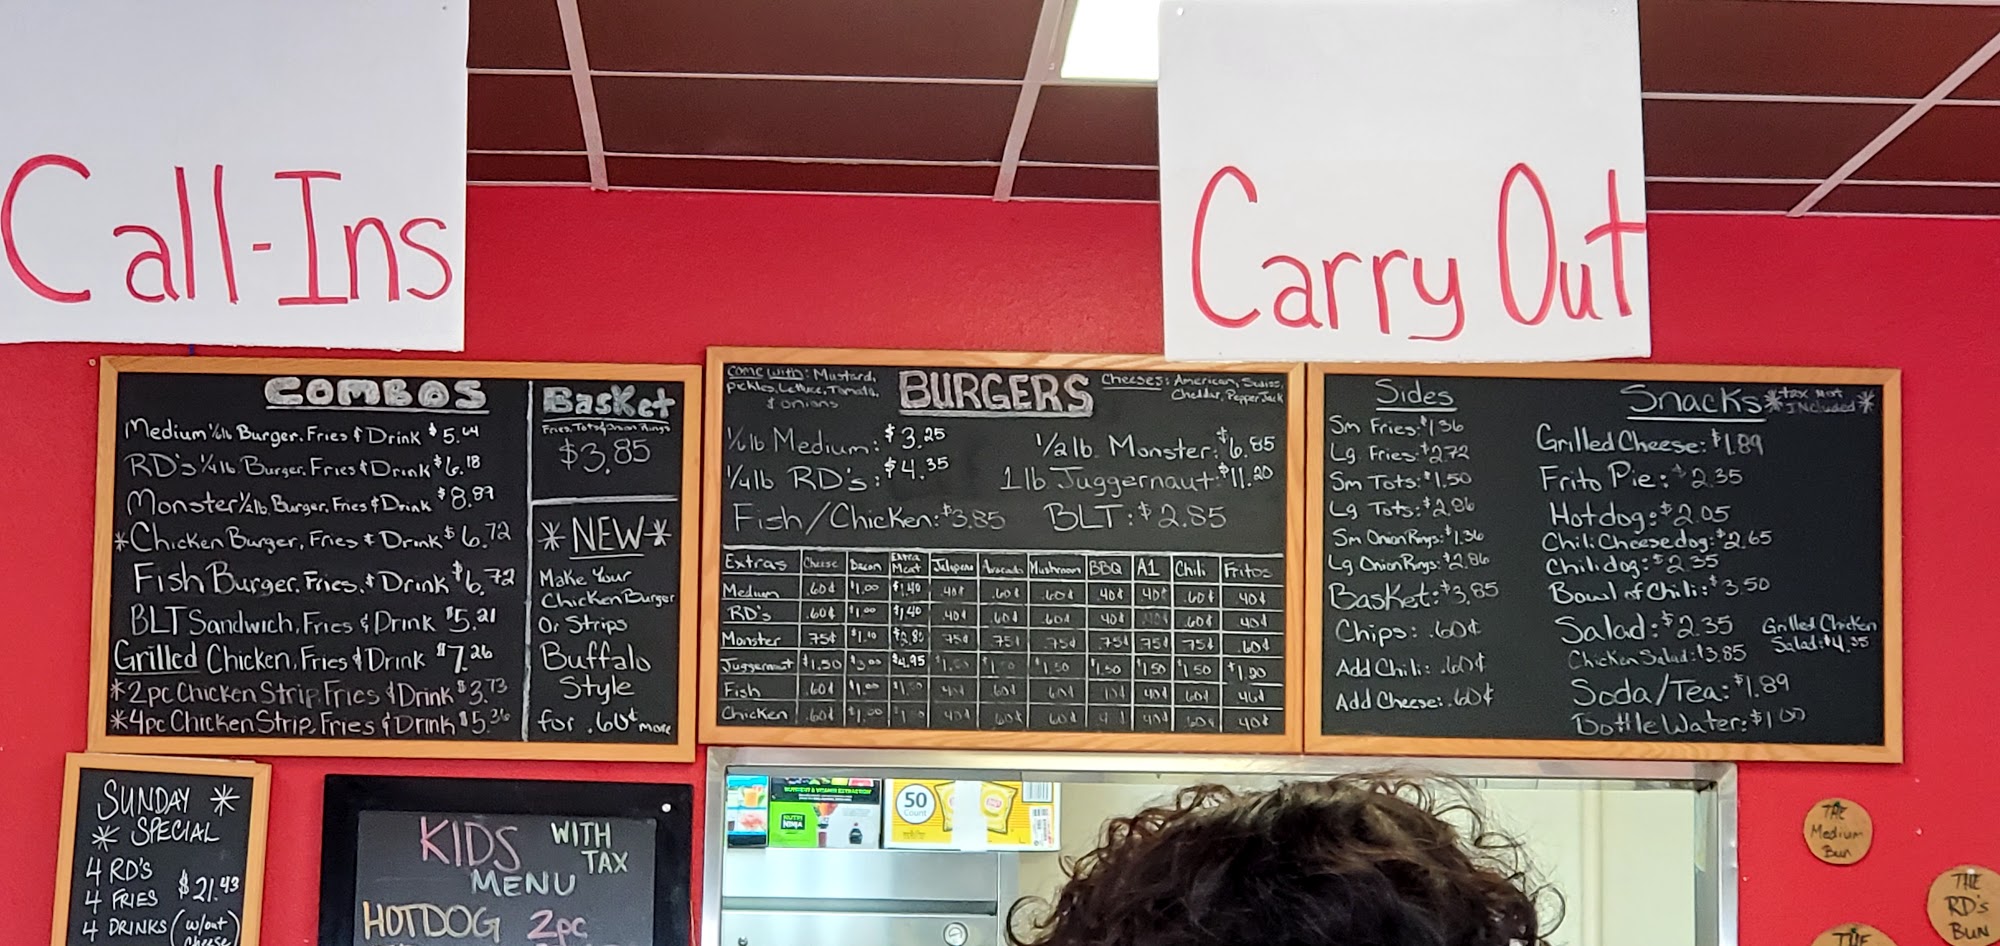 Call-Ins
Carry Out
COMBOS
Medium 1/6 lb Burger, Fries & Drink $5.04
RD's 1/4 lb. Burger, Fries & Drink $6.18
Monster 1/2 lb. Burger, Fries & Drink $8.89
*Chicken Burger, Fries & Drink $6.72
Fish Burger, Fries, & Drink $6.72
BLT Sandwich, Fries & Drink $5.21
Grilled Chicken, Fries & Drink $7.26
*2pc Chicken Strip, Fries & Drink $3.73
*4pc Chicken Strip, Fries & Drink $5.36
Basket
Fries, Tots & Onion Rings
$3.85
*NEW*
Make Your
Chicken Burger
Or Strips
Buffalo
Style
for .60¢ more
Come with: Mustard,
Pickles, Lettuce, Tomato,
& onions
BURGERS
Cheeses: American, Swiss,
Cheddar, Pepper Jack
1/6 lb Medium: $3.25
1/4 lb RD's: $4.35
1/2 lb. Monster: $6.85
1 lb Juggernaut: $11.20
Fish/Chicken: $3.85 BLT: $2.85
Extras Cheese Bacon Extra Meat Jalapeno Avocado Mushroom BBQ A1 Chili Fritos
Medium .60¢ $1.00 $1.40 .40¢ .60¢ .60¢ .40¢ .40¢ .60¢ .40¢
RD's .60¢ $1.00 $1.40 .40¢ .60¢ .60¢ .40¢ .60¢ .40¢
Monster .75¢ $2.80 .75¢ .75¢ .75¢ .75¢ .75¢ .75¢ .60¢
Juggernaut $1.50 $4.95 $1.50 $1.50 $1.50 $1.50
Fish .60¢ .40¢ .60¢
Chicken .60¢ .40¢ .60¢ .60¢ .40¢ .60¢ .40¢
Sides
Sm Fries: $1.36
Lg. Fries: $2.72
Sm Tots: $1.50
Lg Tots: $2.86
Sm Onion Rings: $1.36
Lg Onion Rings: $2.86
Basket: $3.85
Chips: .60¢
Add Chili: .60¢
Add Cheese: .60¢
Snacks *tax Not Included*
Grilled Cheese: $1.89
Frito Pie: $2.35
Hotdog: $2.05
Chili Cheesedog: $2.65
Chilidog: $2.35
Bowl of Chili: $3.50
Salad: $2.35
Grilled Chicken
Salad: $4.35
Chicken Salad: $3.85
Soda/Tea: $1.89
Bottle Water: $1.00
SUNDAY *
* SPECIAL
4 RD'S
4 FRIES $21.43
4 DRINKS (w/out
cheese
KIDS WITH
MENU TAX
HOTDOG 2pc
NUTRIENT & VITAMIN EXTRACTION
NUTRI NINJA
50
Count
Lay's
THE
Medium
Bun
THE
RD's
BUN
THE